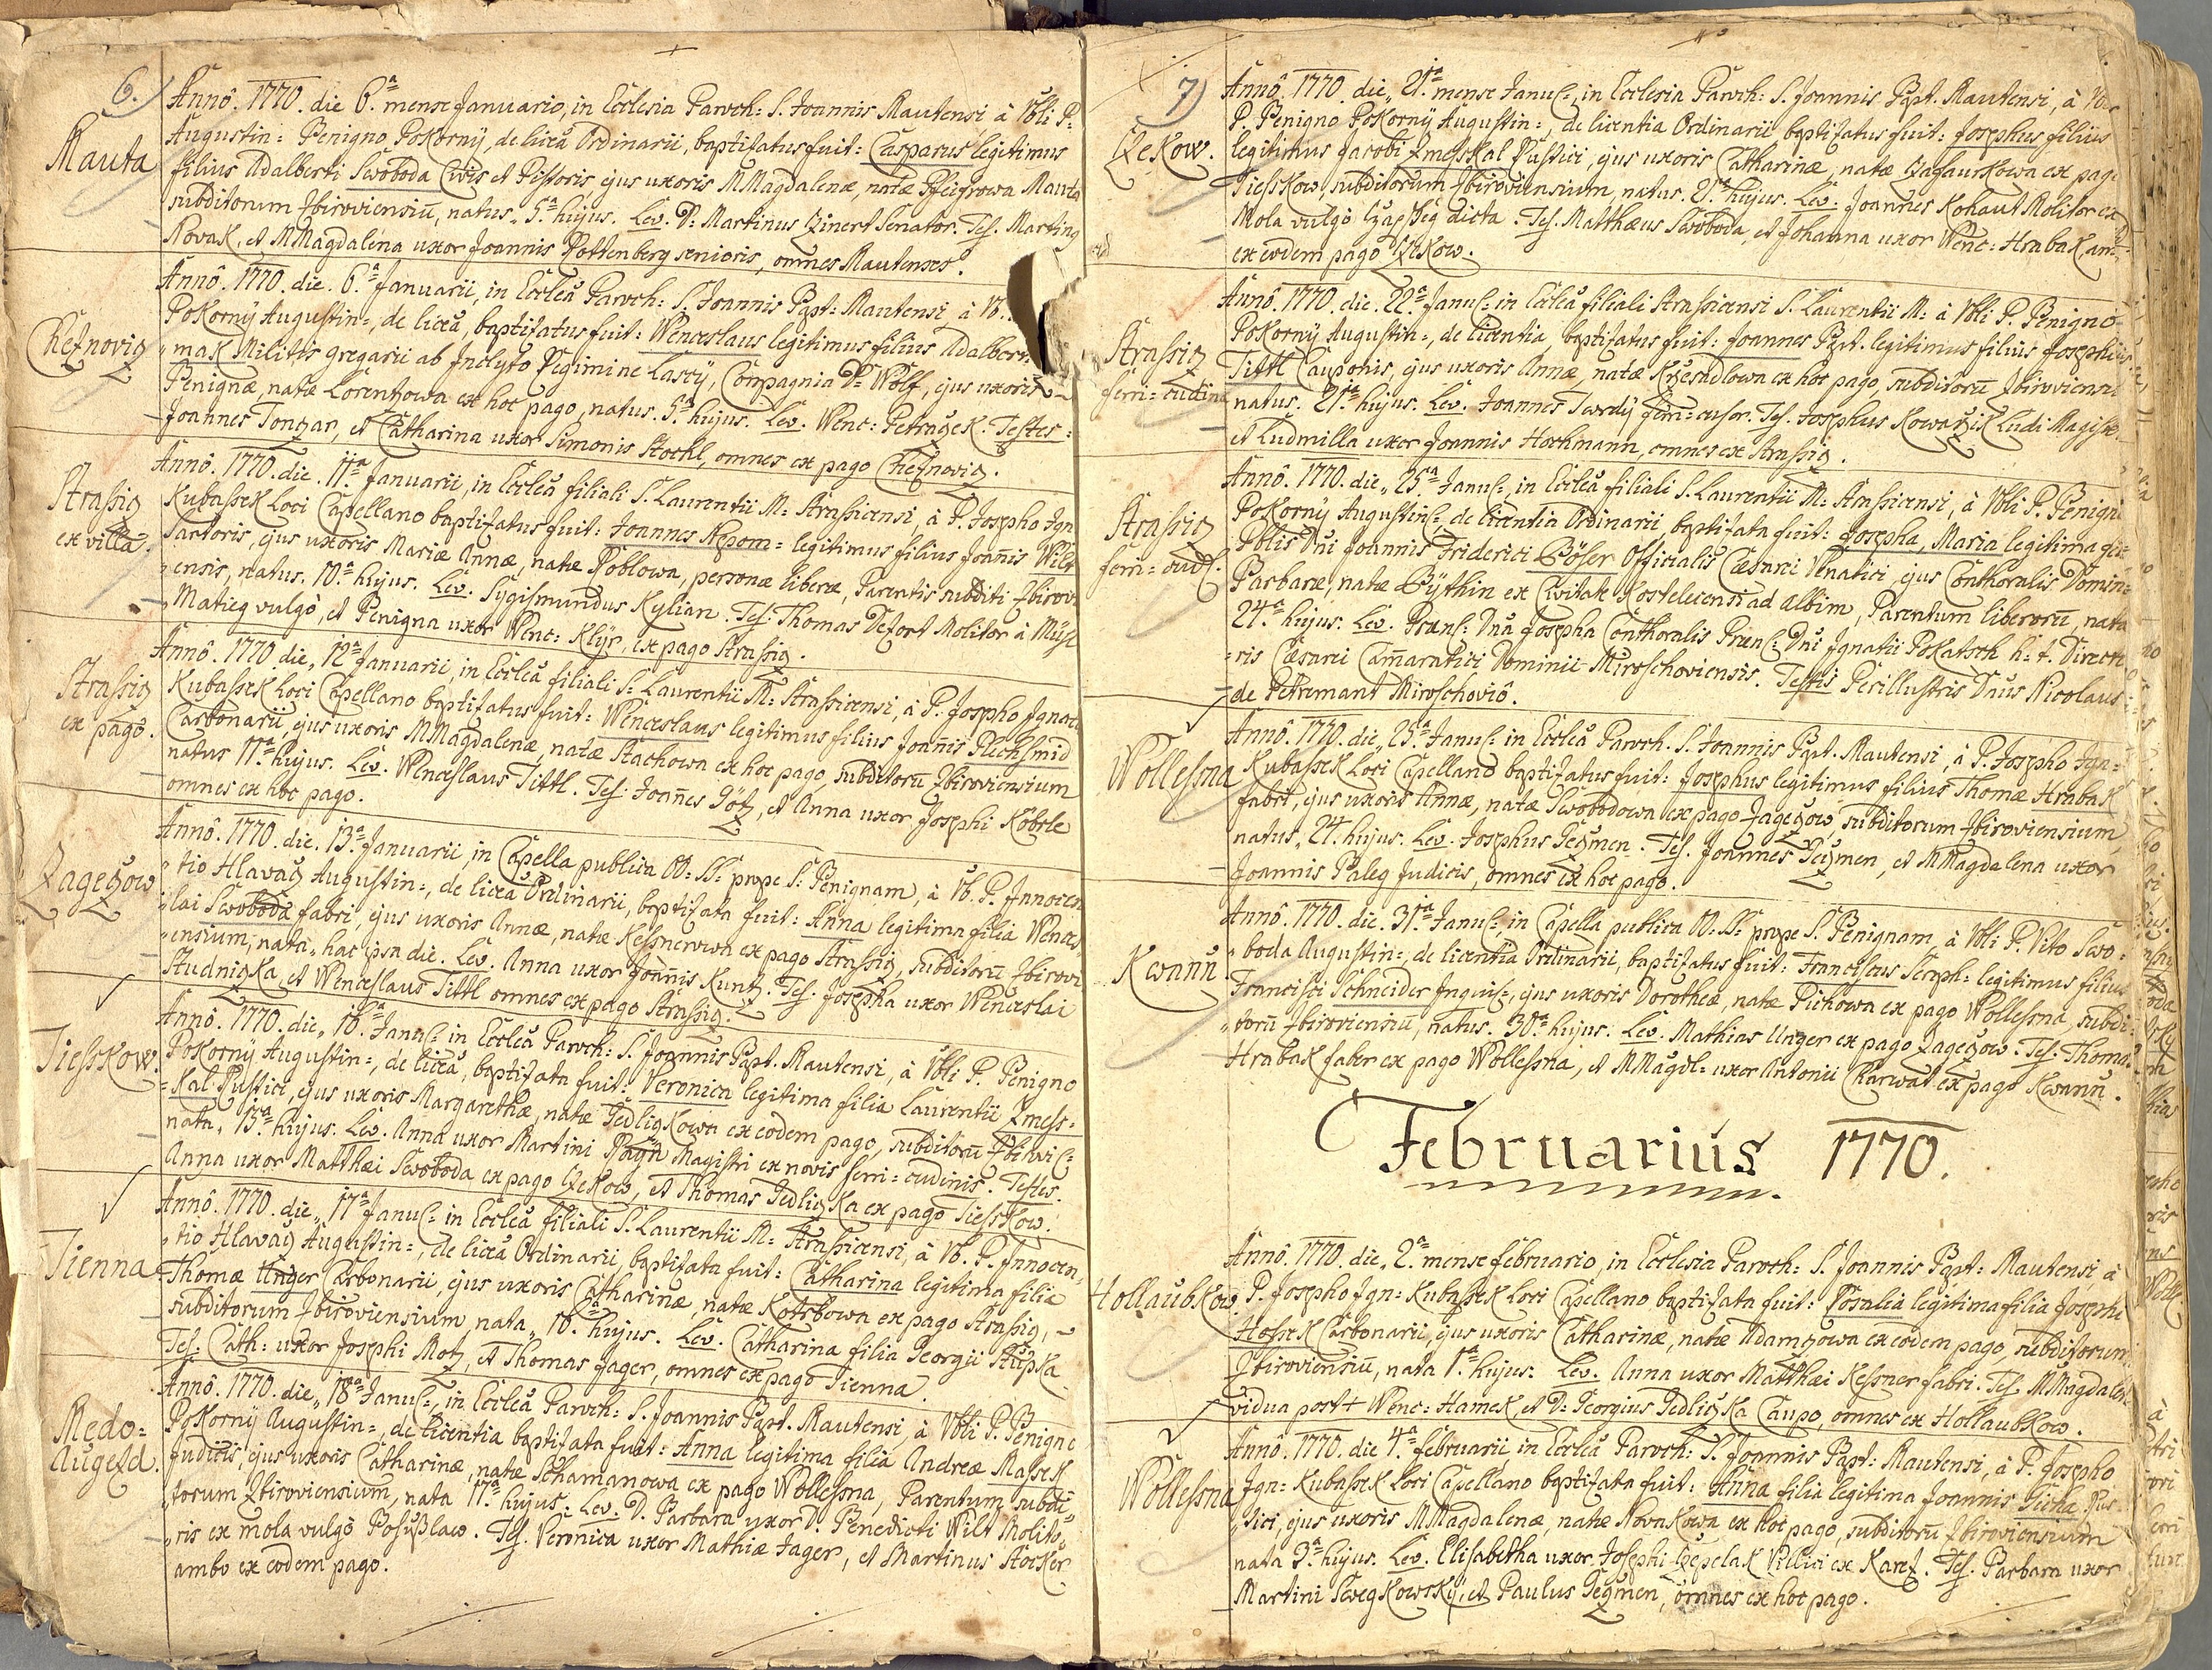 6.
Mauta
Annô. 1770. die 6.ª mense Januario, in Ecclesia Paroch: S. Joannis Mautensi à Vbli P:
Augustin: Benigno Pokornÿ, de licâ Ordinarii, baptisatus fuit: Casparus legitimus
filius Adalberti Swoboda Civis et Pistoris, ejus uxoris MMagdalenæ, natæ Mauta
subditorum Zbiroviensiū, natus„ 5.ª hujus. Lev. D: Martinus Czinert Senator. Tes. Marting
Novak, et MMagdalena uxor Joannis Pottenberg senioris, omnes Mautenses.
Chesnovig
Annô. 1770. die. 6.ª Januarii, in Eccleâ Paroch: S. Joannis Bapt: Mautensi à
Pokornÿ Augustin:, de licâ, baptisatus fuit: Wenceslaus legitimus filius Adalber
„mak Militis gregarii ab Inclyto Regimine Lascÿ, Compagnia D: Wolf, ejus uxoris
Benignæ, natæ Lorentzowa ex hoc pago, natus. 5.ª hujus. Lev. Wenc: Petraczek. Testes:
Joannes Tonzar, et Catharina uxor Simonis Stockl, omnes ex pago Chesnovig.
Strassig
ex villa.
Annô. 1770. die. 11.ª Januarii, in Eccleâ filiali S. Laurentii M: Strassicensi, à P. Josepho Ign
Kubassek Loci Capellano baptisatus fuit: Joannes Nepom= legitimus filius Joānis Wilt
Sartoris, ejus uxoris Mariæ Annæ, natæ Poblowa, personæ liberæ, Parentis subditi Zbirovi
„ensis, natus. 10.ª hujus. Lev. Sÿgismundus Kylian. Tes: Thomas Defort Molitor à
Matieg vulgò, et Benigna uxor Wenc: Klÿr, ex pago Strassig.
Strassig
ex pago.
Annô. 1770. die„ 12.ª Januarii, in Eccleâ filiali S: Laurentii M: Strassicensi, à P. Josepho Ignati
Kubassek Loci Capellano baptisatus fuit: Wenceslaus legitimus filius Joānis Plechsmid
Carbonarii, ejus uxoris MMagdalenæ, natæ Stachowa ex hoc pago, subditorū Zbiroviensium
natus 11.ª hujus. Lev. Wenceslaus Tittl. Tes: Joānes Götz, et Anna uxor Josephi Köbrle
omnes ex hoc pago.
Zagezow
Annô. 1770. die. 13.ª Januarii, in Capella publica OO: SS: prope S: Benignam, à Vb. P. Innocen
„tio Hlavacz Augustin:, de licâ Ordinarii, baptisata fuit: Anna legitima filia Wences
„lai Swoboda fabri, ejus uxoris Annæ, natæ Kessnerowa ex pago Strassig, subditorū Zbirovi
„ensium, nata„ hac ipsa die. Lev. Anna uxor Joānis Kuntz. Tes. Josepha uxor Wenceslai
Studnizka, et Wenceslaus Tittl omnes ex pago Strassig.
Tiesskow.
Annô. 1770. die„ 16.ª Janu: in Eccleâ Paroch: S. Joannis Bapt. Mautensi, à Vbli P. Benigno
Pokornÿ Augustin:, de licâ, baptisata fuit: Veronica legitima filia Laurentii Zmess=
=kal Rustici, ejus uxoris Margarethæ, natæ Jedligkowa ex eodem pago, subditorū Zbirovic:
nata„ 15.ª hujus. Lev. Anna uxor Martini Magistri ex novis ferri=cudinis. Testes.
Anna uxor Matthæi Swoboda ex pago Czekow, et Thomas Jedligka ex pago Tiesskow.
Tienna
Annô. 1770. die„ 17.ª Janu: in Eccleâ filiali S. Laurentii M: Strassicensi, à Vb. P. Innocen„
„tio Hlavacz Augustin:, de licâ Ordinarii, baptisata fuit: Catharina legitima filia
Thomæ Unger Carbonarii, ejus uxoris Catharinæ, natæ Kotrbowa ex pago Strassig,
subditorum Zbiroviensium nata„ 16.ª hujus. Lev. Catharina filia Georgii Stupka
Tes: Cath: uxor Josephi Motz, et Thomas Jager, omnes ex pago Tienna.
Medo=
Augezd.
Annô. 1770. die„ 18.ª Janu:, in Eccleâ Paroch: S. Joannis Bapt. Mautensi, à Vbli P. Benigno
Pokornÿ Augustin:, de licentia baptisata fuit: Anna legitima filia Andreæ Massek
Judicis, ejus uxoris Catharinæ, natæ Schamanowa ex pago Wollessna, Parentum subdi=
„torum Zbiroviensium, nata 17.ª hujus. Lev. D. Barbara uxor D. Benedicti Wilt Molito„
„ris ex mola vulgò Bohußlaw. Tes. Veronica uxor Mathiæ Jager, et Martinus Stocker
ambo ex eodem pago.
7)
Czekow.
Annô. 1770. die„ 21.ª mense Janu:, in Ecclesia Paroch: S. Joannis Bapt. Mautensi, à
P. Benigno Pokornÿ Augustin:, de licentia Ordinarii baptisatus fuit: Josephus filius
legitimus Jacobi Zmesskal Rustici, ejus uxoris Catharinæ, natæ ex pago
Tiesskow, subditorum Zbiroviensium, natus. 21.ª hujus. Lev: Joannes Kohaut Molitor ex
Mola vulgò dicta. Tes. Matthæus Swoboda, et Johanna uxor Wenc: Hrabak, am
ex eodem pago Czekow.
Strassig
ferri=cudinæ
Annô. 1770. die. 22.ª Janu: in Eccleâ filiali Strassicensi S. Laurentii M: à Vbli P. Benigno
Pokornÿ Augustin:, de licentia, baptisatus fuit: Joannes Bapt. legitimus filius Josephi
Tittl Cauponis, ejus uxoris Annæ, natæ Krzesadlowa ex hoc pago, subditorū Zbiroviensi
natus. 21.ª hujus. Lev. Joannes Twrdÿ ferri=cusor. Tes. Josephus Kowarzik Ludi Magist.
et Ludmilla uxor Joannis Hochmann, omnes ex Strassig.
Strassig
ferri=cud:
Annô. 1770. die„ 25.ª Janu:, in Eccleâ filiali S. Laurentii M: Strassicensi, à Vbli P. Benigno
Pokornÿ Augustin:, de licentia Ordinarii, baptisata fuit: Josepha, Maria legitima fi
Nobilis Dni Joannis Friderici Böser Officialis Cæsarei Venatici, ejus Conthoralis Domin=
Barbaræ, natæ Bÿthin ex Civitate Kostelecensi ad Albim, Parentum liberorū, nata
24.ª hujus. Lev. Præn: Dnâ Josepha Conthoralis Præn: Dni Ignatii Pokatsch h: t. Directo
=ris Cæsarei Cammeratici Dominii Miroschoviensis. Testis Perillustris Dnus Nicolaus
de Petremant Miroschoviô.
Wollessna
Annô. 1770. die„ 25.ª Janu: in Eccleâ Paroch. S. Joannis Bapt. Mautensi, à P. Josepho Ign=
Kubassek Loci Capellano baptisatus fuit: Josephus legitimus filius Thomæ Hrabak
fabri, ejus uxoris Annæ, natæ Swobodowa ex pago Zagezow, subditorum Zbiroviensium,
natus„ 24. hujus. Lev. Josephus Gezmen. Tes. Joannes Gezmen, et MMagdalena uxor
Joannis Paleg Judicis, omnes ex hoc pago.
Kwann̄
Annô. 1770. die. 31.ª Janu: in Capella publica OO. SS: prope S. Benignam, à Vbli P. Vito Swo=
„boda Augustin:, de licentia Ordinarii, baptisatus fuit: Franciscus Seraph: legitimus filius
Francisci Schneider Inquil:, ejus uxoris Dorotheæ, natæ Pichowa ex pago Wollessna, subdi=
„torū Zbiroviensiū, natus. 30.ª hujus. Lev. Mathias Unger ex pago Zagezow. Tes. Thomas
Hrabak faber ex pago Wollessna, et MMagdl= uxor Antonii Charwat ex pago Kwann̄.
Februarius 1770.
Hollaubkow.
Annô. 1770. die„ 2.ª mense februario, in Ecclesia Paroch: S. Joannis Bapt: Mautensi à
P. Josepho Ign= Kubassek Loci Capellano baptisata fuit: Rosalia legitima filia Josephi
Hossek Carbonarii, ejus uxoris Catharinæ, natæ Adamzowa ex eodem pago, subditorum
Zbiroviensiū, nata 1.ª hujus. Lev. Anna uxor Matthæi Kessner fabri. Tes. MMagdalena
vidua post + Wenc: Hamek, et D: Georgius Jedligka Caupo, omnes ex Hollaubkow.
Wollessna
Annô. 1770. die 4.ª februarii, in Eccleâ Paroch: S. Joannis Bapt: Mautensi, à P. Josepho
Ign= Kubassek Loci Capellano baptisata fuit: Anna filia legitima Joannis Rus=
„tici, ejus uxoris MMagdalenæ, natæ Novakowa ex hoc pago, subditorū Zbiroviensium
nata 3.ª hujus. Lev. Elisabetha uxor Josephi Czepelak Villici ex Karez. Tes. Barbara uxor
Martini Swegkowskÿ, et Paulus Gezmen, omnes ex hoc pago.